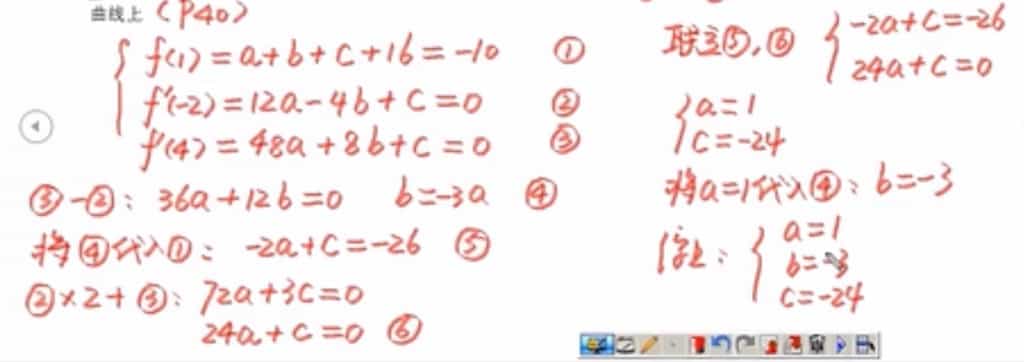 曲线上 (P40)
f(1)=a+b+c+16=-10 ①
f'(-2)=12a-4b+c=0 ②
f'(4)=48a+8b+c=0 ③
③-②: 36a+12b=0 b=-3a ④
将④代入①: -2a+c=-26 ⑤
②×2+③: 72a+3c=0
24a+c=0 ⑥
联立⑤,⑥ -2a+c=-26
24a+c=0
a=1
c=-24
将a=1代入④: b=-3
综上: a=1
b=-3
c=-24